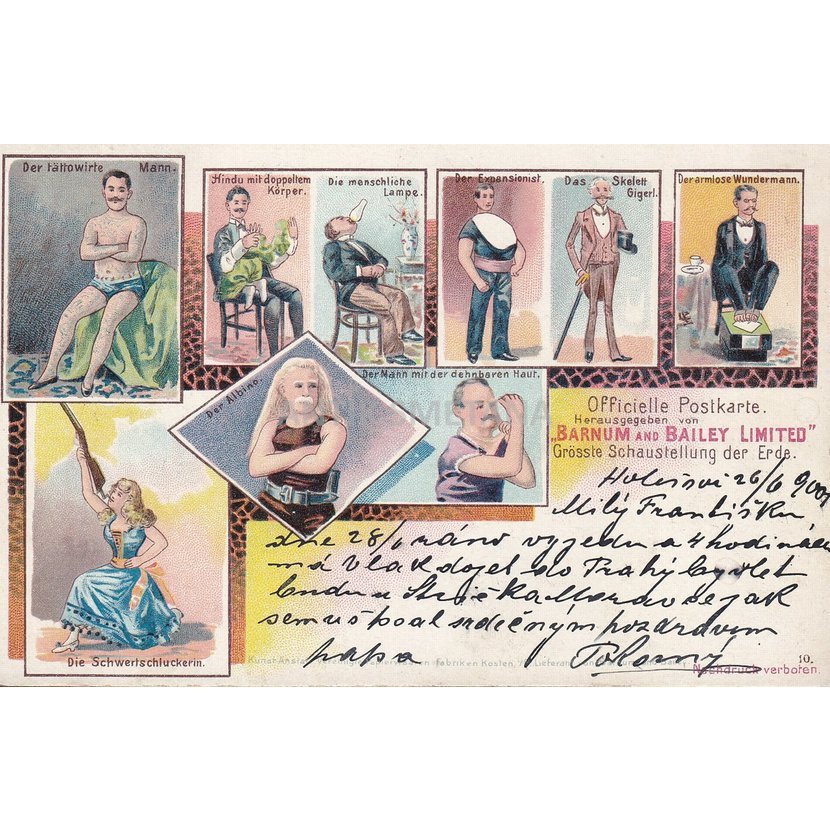 Der tättowirte Mann.
Hindu mit doppeltem
Körper.
Die menschliche
Lampe.
Der Expansionist.
Das Skelett
Gigerl.
Der armlose Wundermann.
Der Albino.
Der Mann mit der dehnbaren Haut.
Die Schwertschluckerin.
Officielle Postkarte.
Herausgegeben von
„BARNUM AND BAILEY LIMITED"
Grösste Schaustellung der Erde.
26/6 900
Milý Františku
dne 28/6 ráno vyjedu a 4 hodináce
má vlak dojet do Prahy
jak
sem srdečným pozdravem
papa Pokorný
Kunst-Anstalt
fabriken Kosten,
10.
Nachdruck verboten.